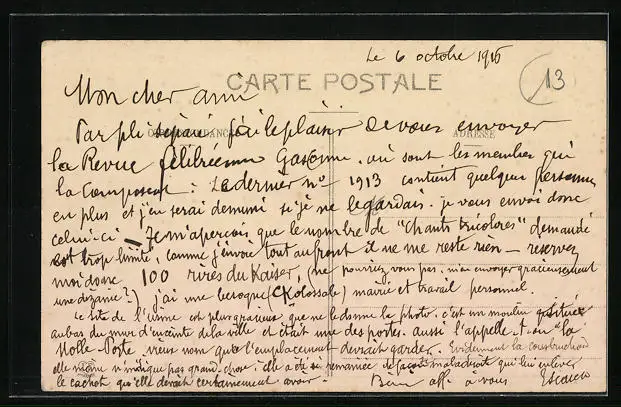 Le 6 octobre 1915
13
CARTE POSTALE
Mon cher ami
CORRESPONDANCE
ADRESSE
Par pli séparé j'ai le plaisir de vous envoyer
la Revue félibréenne Gasconne, où sont les membres qui
la composent : Le dernier no 1913 contient quelques personnes
en plus et j'en serai démuni si je ne le gardais. je vous envoi donc
celui-ci – Je m'aperçois que le nombre de "Chants tricolores" demandé
est trop limité, comme j'envoie tout au front il ne me reste rien – réservez
moi donc 100 rires du Kaiser, (ne pourriez vous pas m'en envoyer gracieusement
une dizaine?) j'ai une besogne (Kolossale) mairie et travail personnel.
Le site de l'usine est plus gracieux que ne le donne la photo. c'est un moulin situé
au bas du mur d'enceinte de la ville et était une des portes. aussi l'appelle-t-on "la
Molle-Porte, vieux nom que l'emplacement devrait garder. Evidemment la construction
elle même n'indique pas grand chose. elle a été remaniée de façon maladroite qui lui enlève
le cachot qu'elle devait certainement avoir. Bien aff. à vous